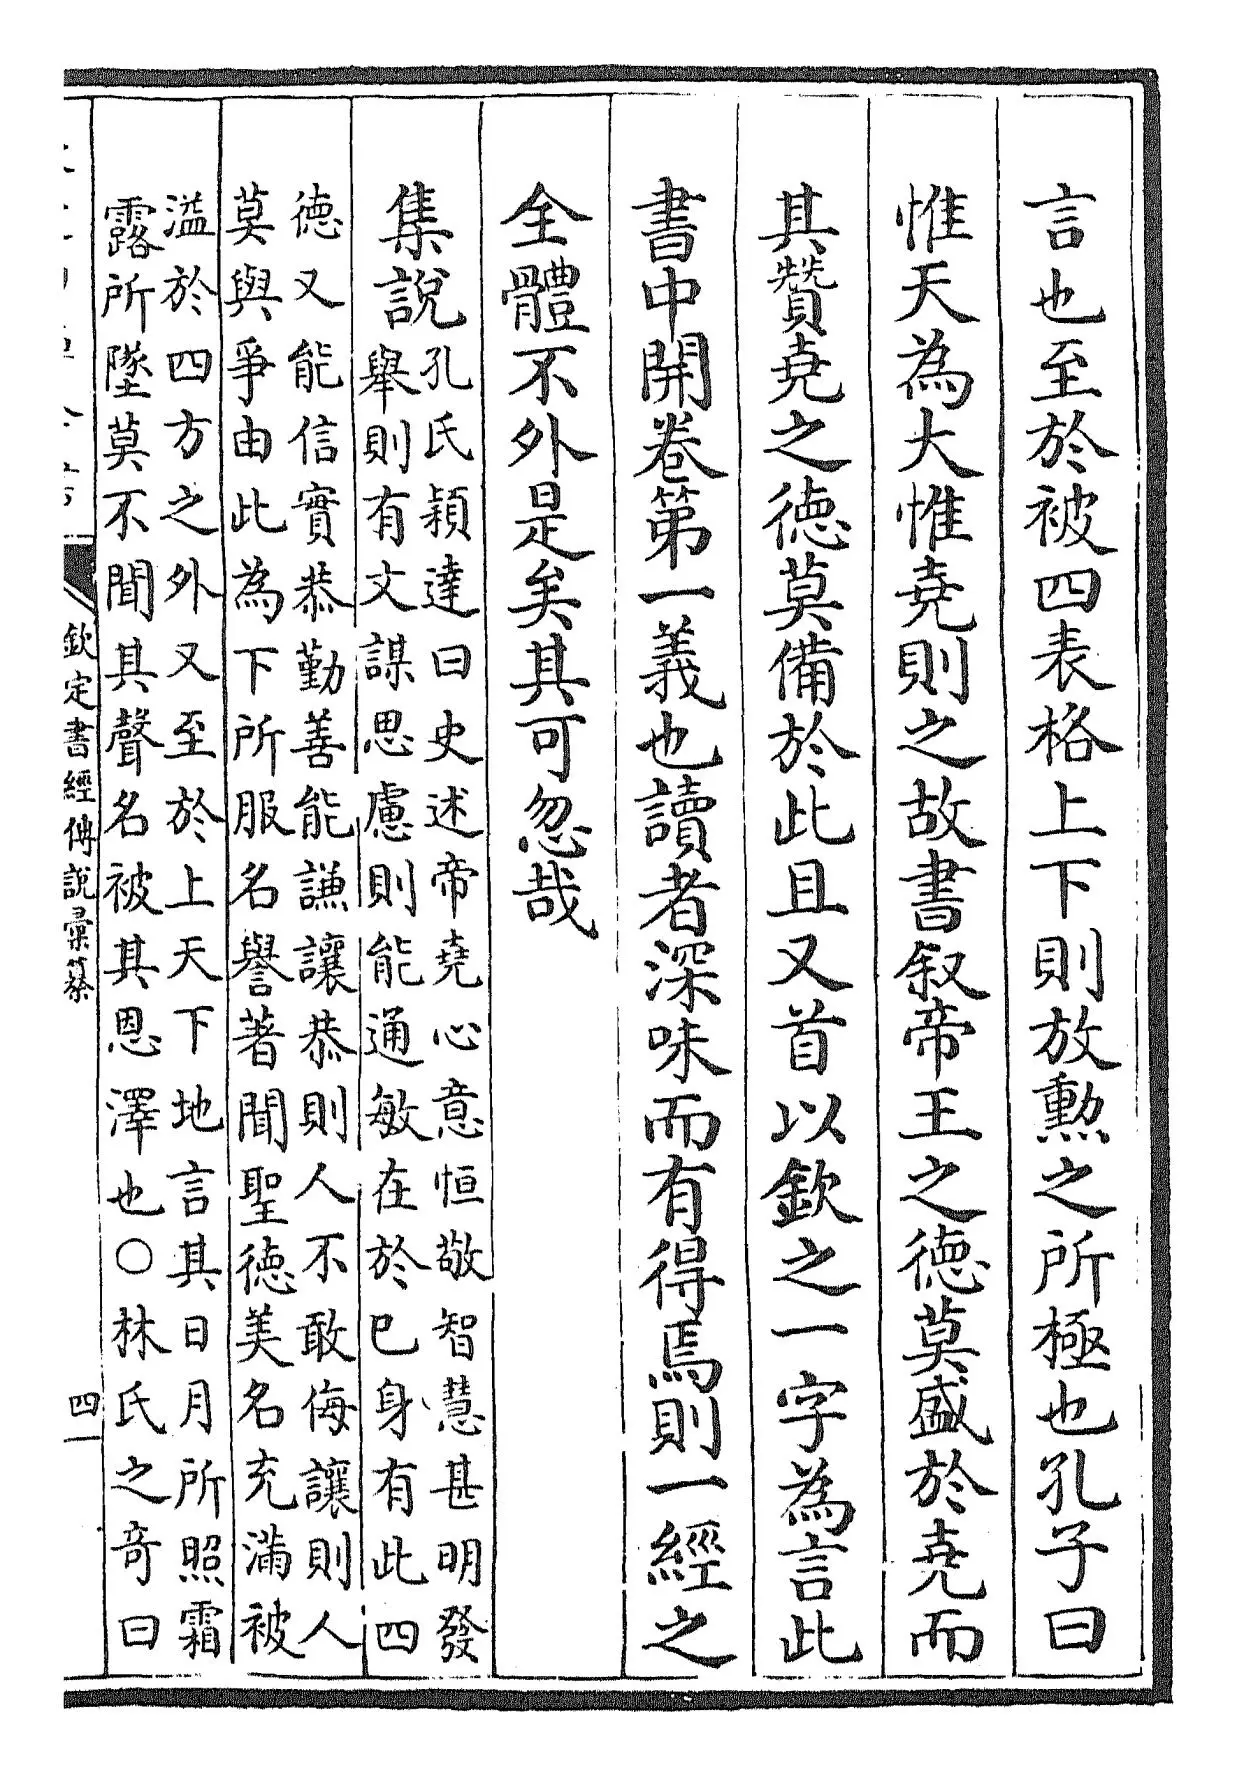 言也至於被四表格上下則放勲之所極也孔子曰
惟天為大惟堯則之故書叙帝王之德莫盛於堯而
其贊堯之德莫備於此且又首以欽之一字為言此
書中開卷第一義也讀者深味而有得焉則一經之
全體不外是矣其可忽哉
集說
孔氏穎達曰史述帝堯心意恒敬智慧甚明發
舉則有文謀思慮則能通敏在於巳身有此四
德又能信實恭勤善能謙讓恭則人不敢侮讓則人
莫與爭由此為下所服名譽著聞聖德美名充滿被
溢於四方之外又至於上天下地言其日月所照霜
露所墜莫不聞其聲名被其恩澤也○林氏之奇曰
欽定書經傳說彙纂
四一